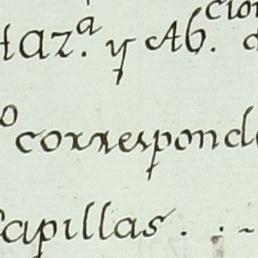 Haz.ª y Ab.cion
o corresponde
Capillas . . ~